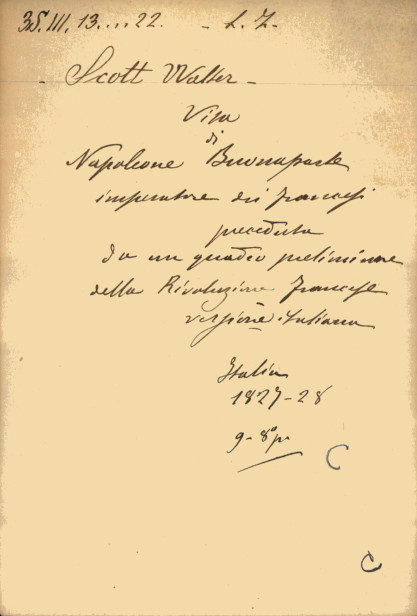 35. III, 13...22. - L. Z.
- Scott Walter -
Vita
di
Napoleone Buonaparte
imperatore dei francesi
preceduta
da un quadro preliminare
della Rivoluzione francese
versione italiana
Italia
1827-28
9-8º
C
C